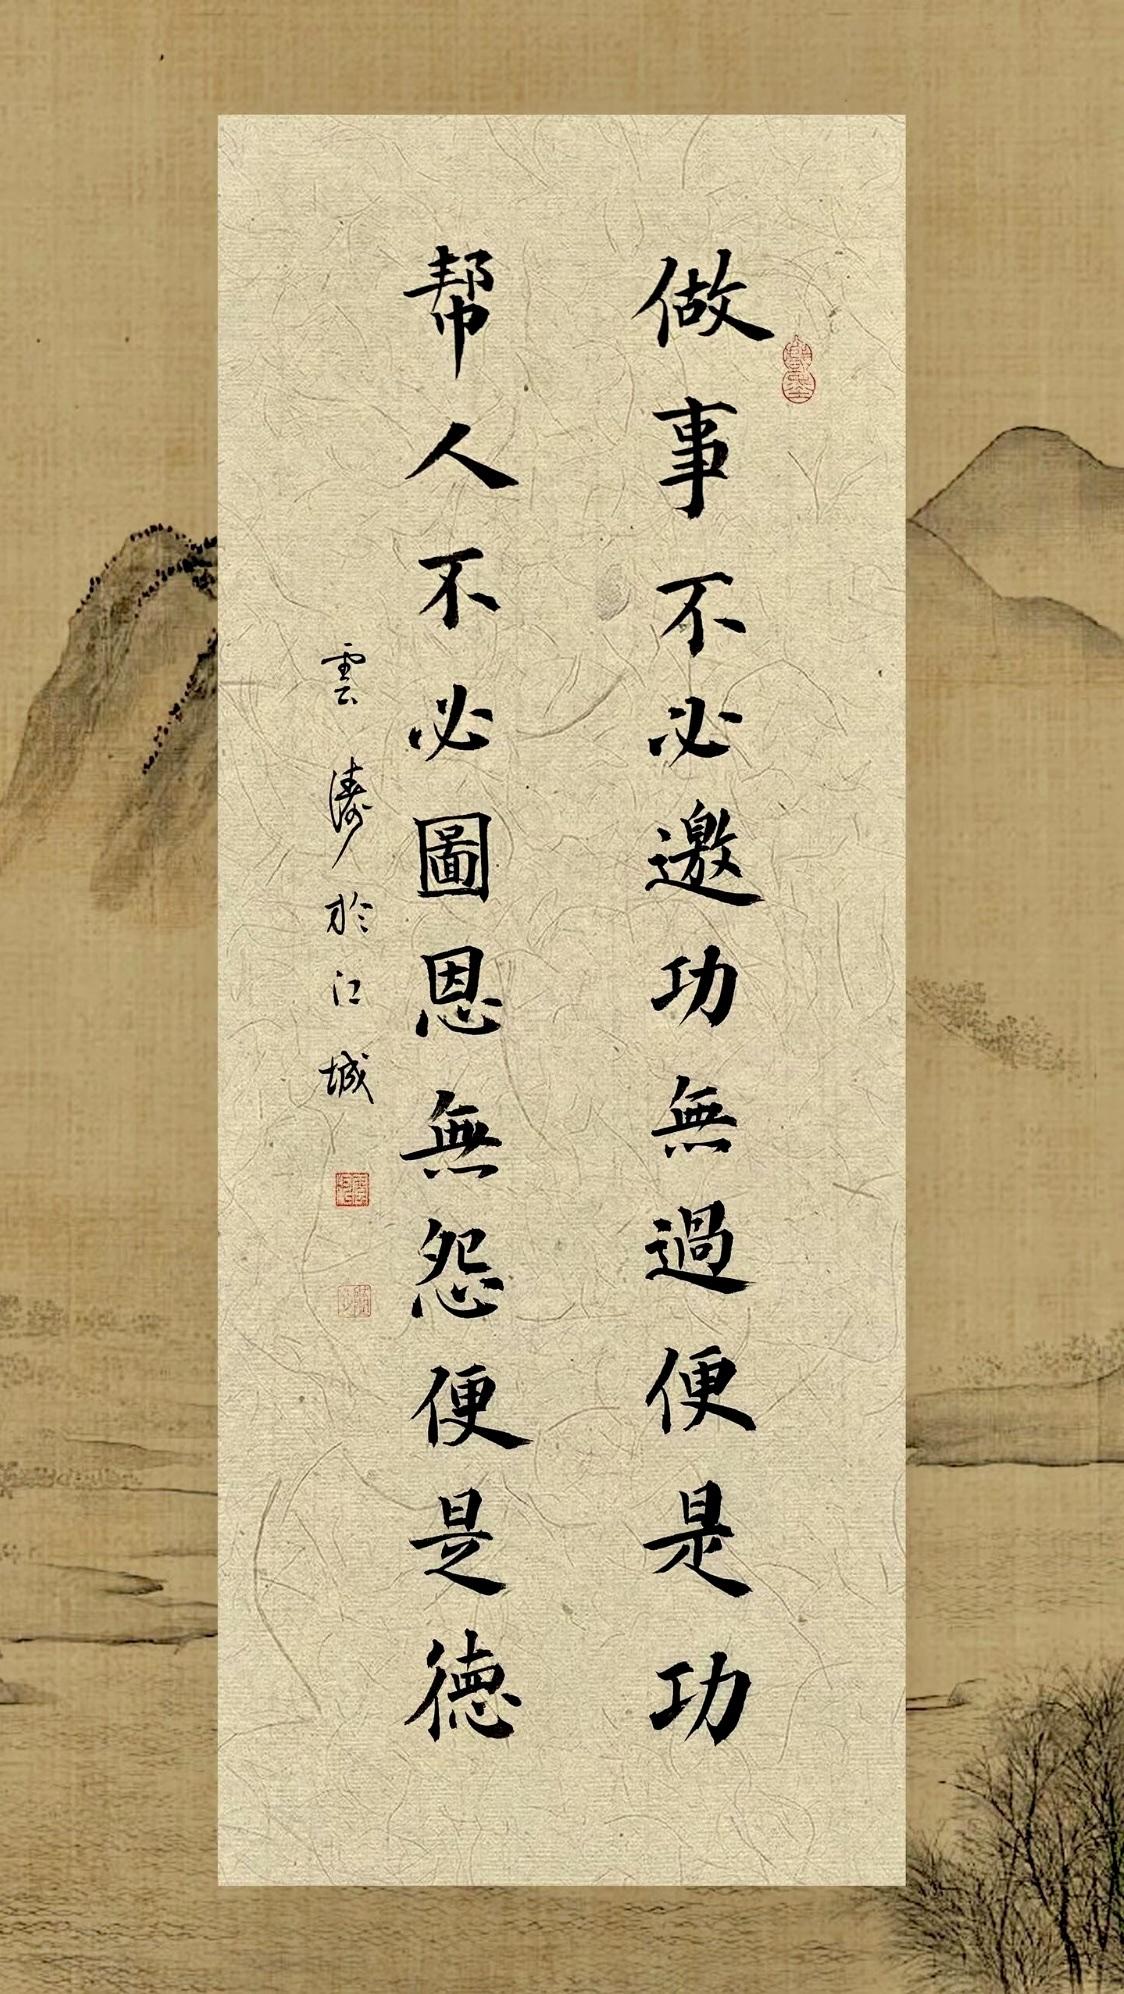 做事不必邀功無過便是功
帮人不必圖恩無怨便是德
雲濤於江城